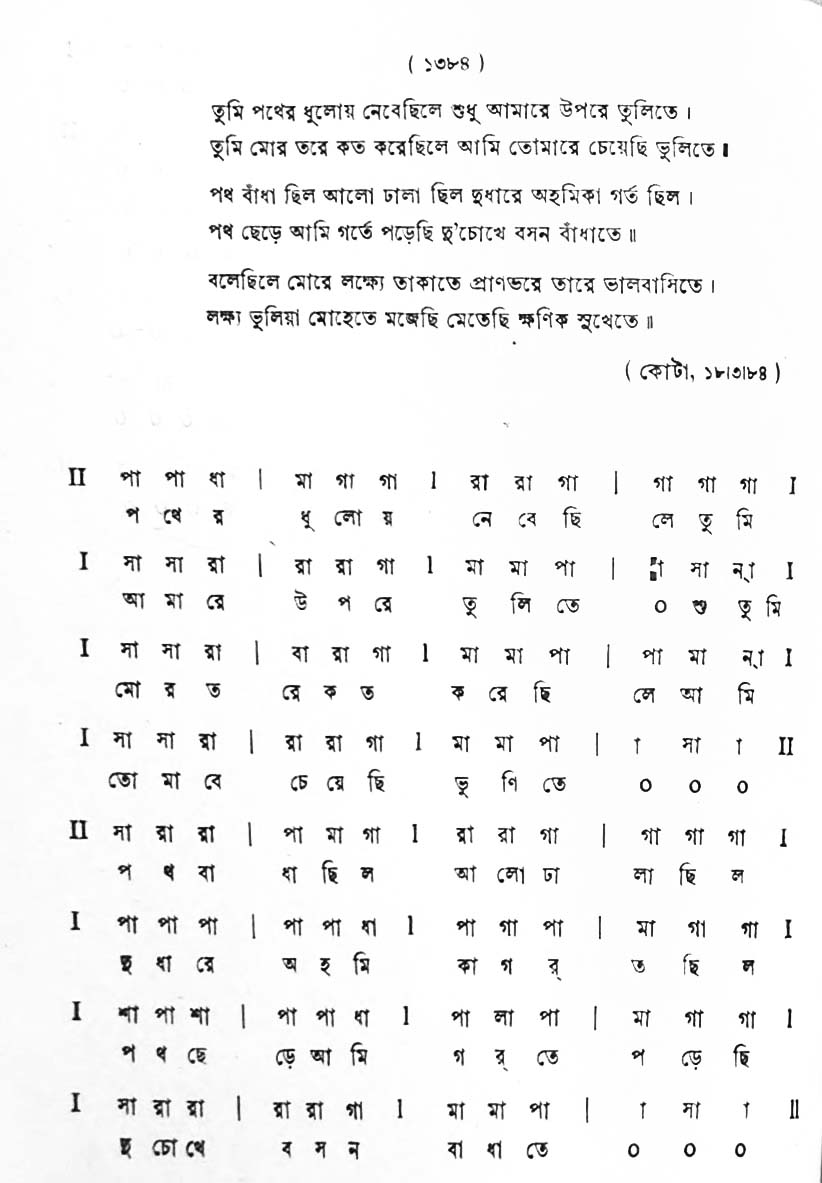 ( ১৩৮৪ )
তুমি পথের ধুলোয় নেবেছিলে শুধু আমারে উপরে তুলিতে ।
তুমি মোর তরে কত করেছিলে আমি তোমারে চেয়েছি ভুলিতে ॥
পথ বাঁধা ছিল আলো ঢালা ছিল দুধারে অহমিকা গর্ত ছিল ।
পথ ছেড়ে আমি গর্তে পড়েছি দু'চোখে বসন বাঁধাতে ॥
বলেছিলে মোরে লক্ষ্যে তাকাতে প্রাণভরে তারে ভালবাসিতে ।
লক্ষ্য ভুলিয়া মোহেতে মজেছি মেতেছি ক্ষণিক সুখেতে ॥
( কোটা, ১৮।৩।৮৪ )
II পা পা ধা | মা গা গা l রা রা গা | গা গা গা I
প থে র ধু লো য় নে বে ছি লে তু মি
I সা সা রা | রা রা গা l মা মা পা | সা ন্া I
আ মা রে উ প রে তু লি তে ০ শু তু মি
I সা সা রা | বা রা গা l মা মা পা | পা মা ন্া I
মো র ত রে ক ত ক রে ছি লে আ মি
I সা সা রা | রা রা গা l মা মা পা | া সা া II
তো মা বে চে য়ে ছি ভু ণি তে ০ ০ ০
II সা রা রা | পা মা গা l রা রা গা | গা গা গা I
প থ বা ধা ছি ল আ লো ঢা লা ছি ল
I পা পা পা | পা পা ধা l পা গা পা | মা গা গা I
দু ধা রে অ হ মি কা গ র্ ত ছি ল
I শা পা শা | পা পা ধা l পা লা পা | মা গা গা l
প থ ছে ড়ে আ মি গ র্ তে প ড়ে ছি
I সা রা রা | রা রা গা l মা মা পা | া সা া ll
দু চো খে ব স ন বা ধা তে ০ ০ ০